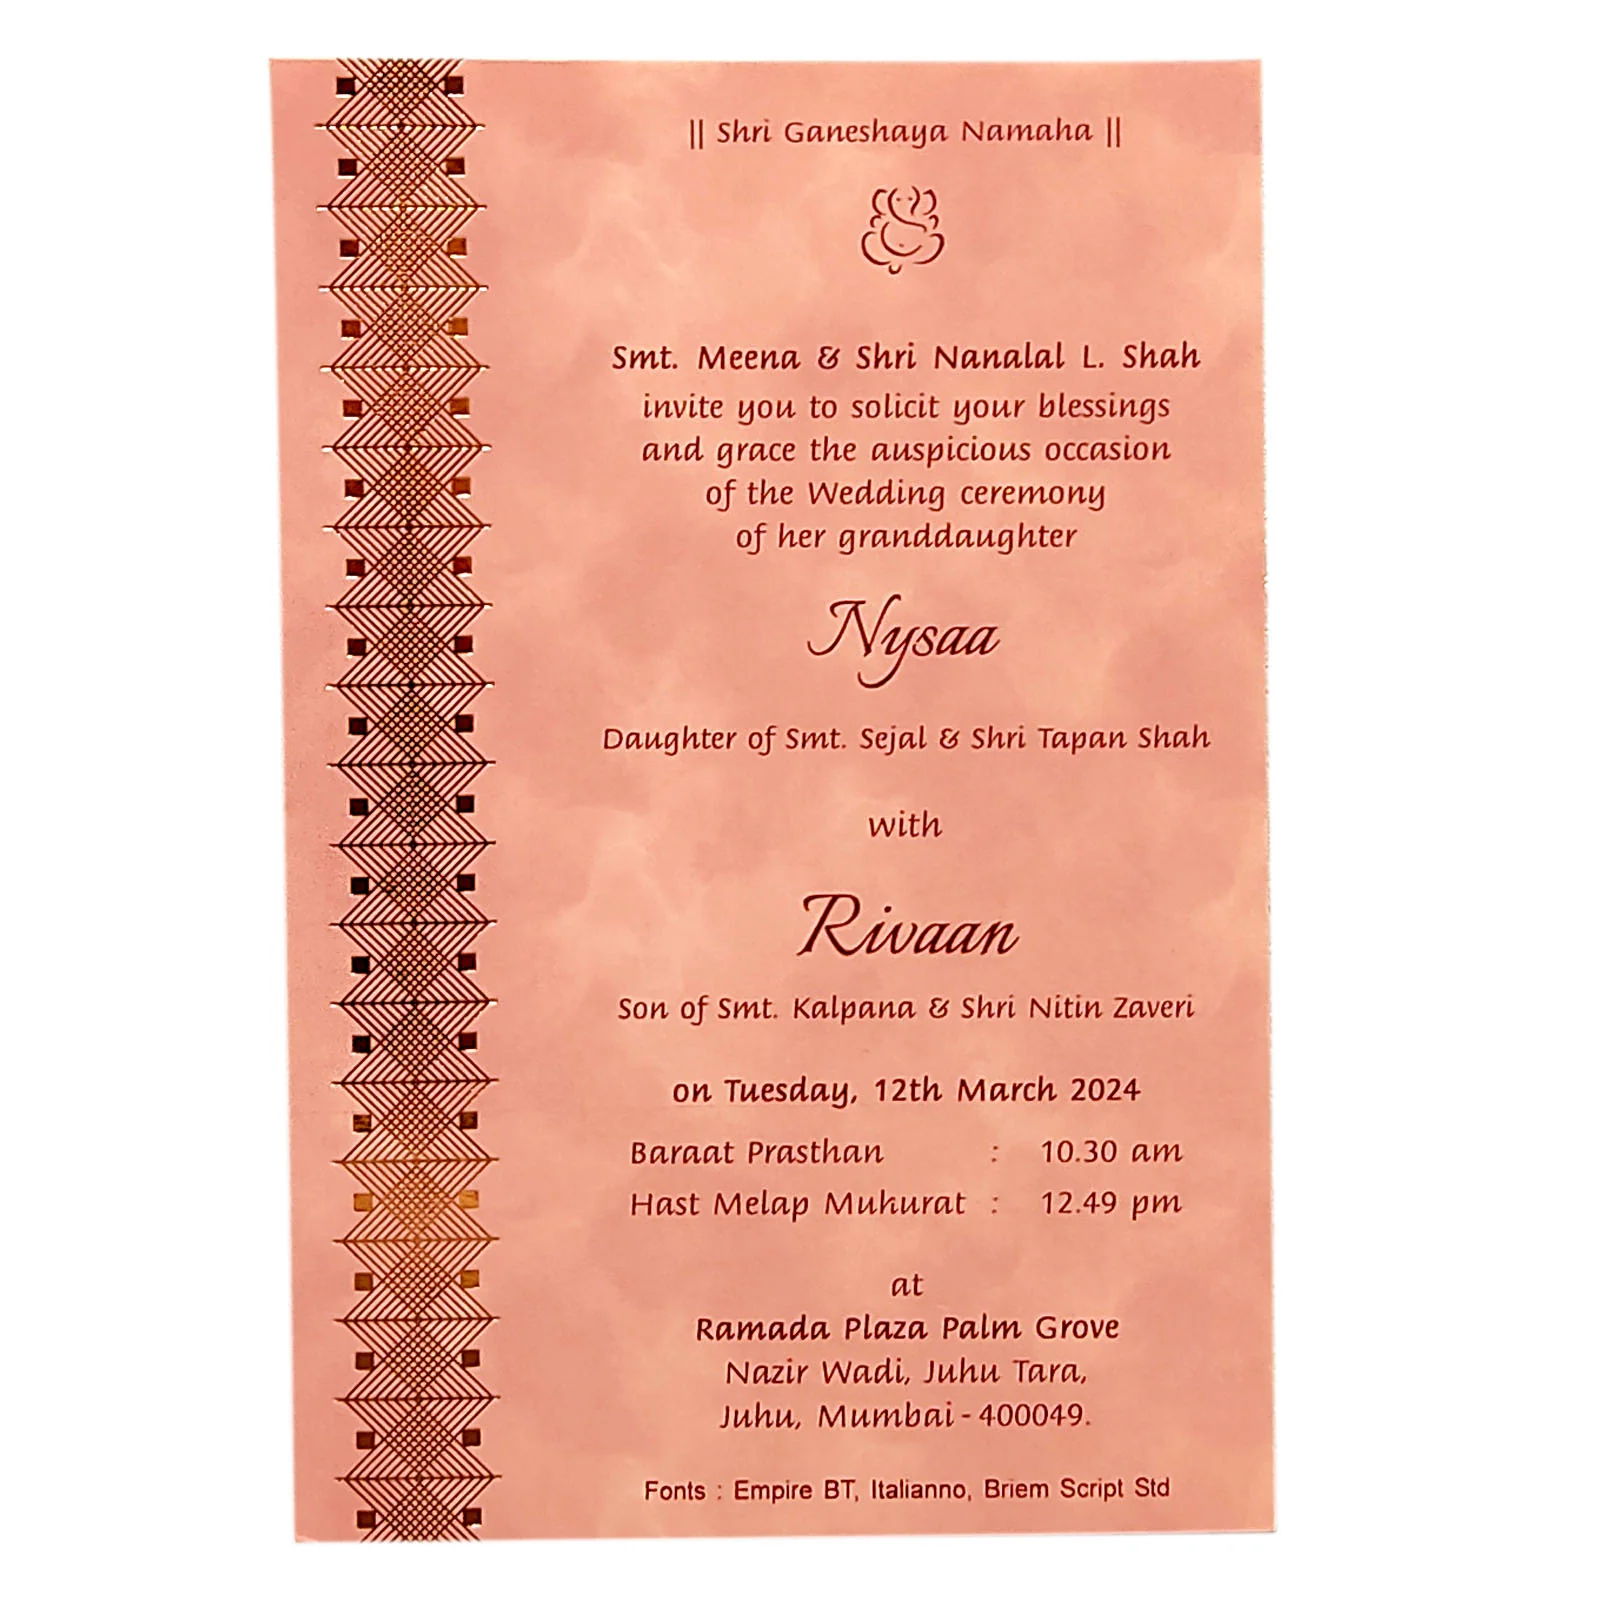 || Shri Ganeshaya Namaha ||
Smt. Meena & Shri Nanalal L. Shah
invite you to solicit your blessings
and grace the auspicious occasion
of the Wedding ceremony
of her granddaughter
Nysaa
Daughter of Smt. Sejal & Shri Tapan Shah
with
Rivaan
Son of Smt. Kalpana & Shri Nitin Zaveri
on Tuesday, 12th March 2024
Baraat Prasthan : 10.30 am
Hast Melap Mukurat : 12.49 pm
at
Ramada Plaza Palm Grove
Nazir Wadi, Juhu Tara,
Juhu, Mumbai - 400049.
Fonts : Empire BT, Italianno, Briem Script Std